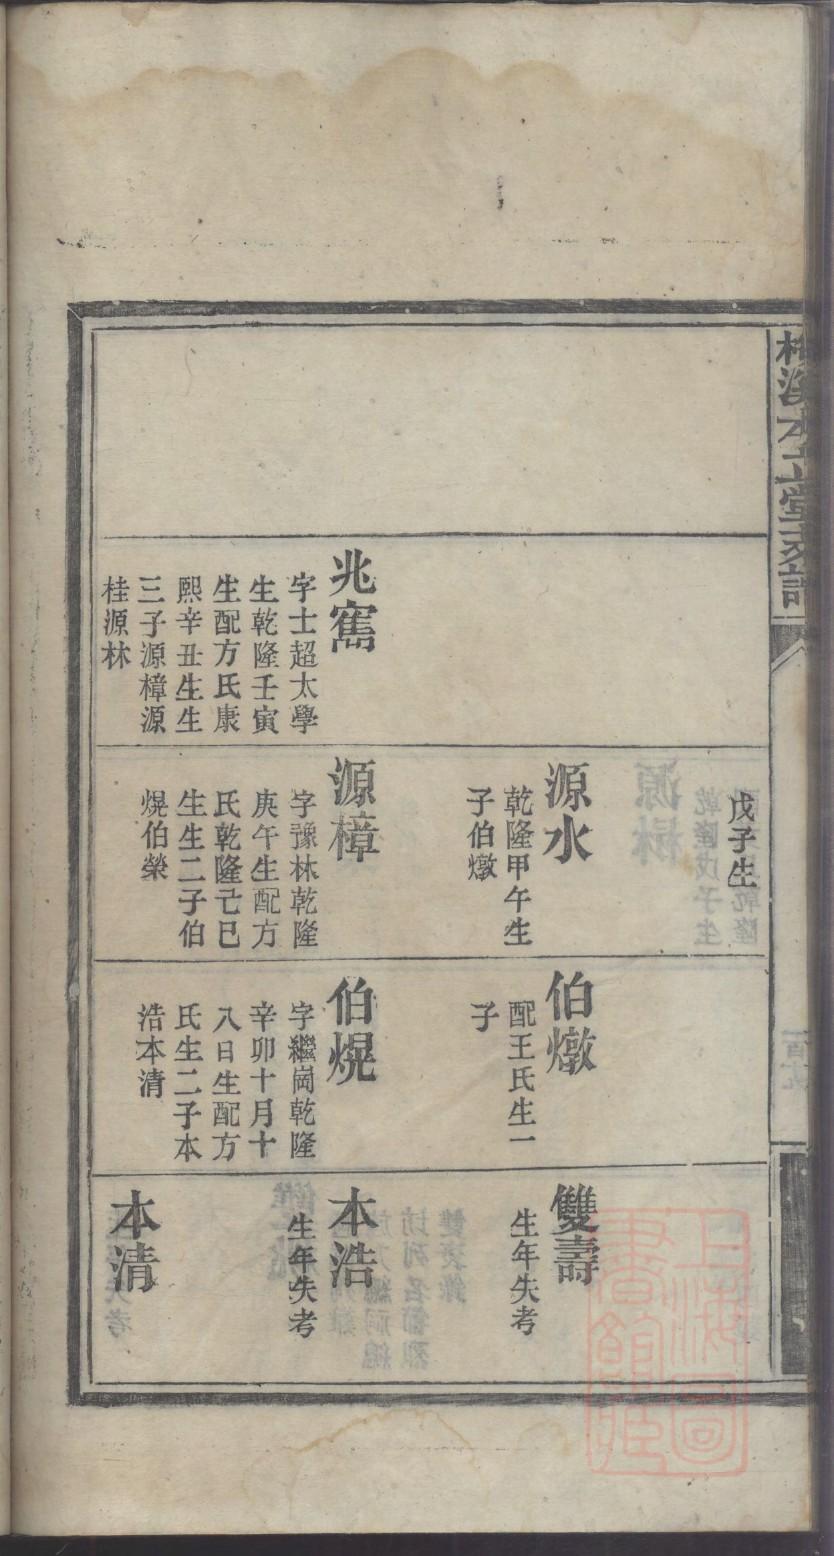 兆寯
字士超太學
生乾隆壬寅
生配方氏康
熙辛丑生生
三子源樟源
桂源林
戊子生
源水
乾隆甲午生
子伯燉
源樟
字豫林乾隆
庚午生配方
氏乾隆己巳
生生二子伯
熀伯榮
伯燉
配王氏生一
子
伯熀
字繼崗乾隆
辛卯十月十
八日生配方
氏生二子本
浩本清
雙壽
生年失考
本浩
生年失考
本清
上海圖書館藏